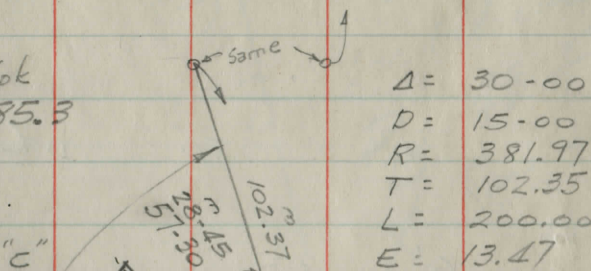 same
ok
85.3
"c"
102.37 m
28-45
57-30
Δ = 30-00
D = 15-00
R = 381.97
T = 102.35
L = 200.00
E = 13.47